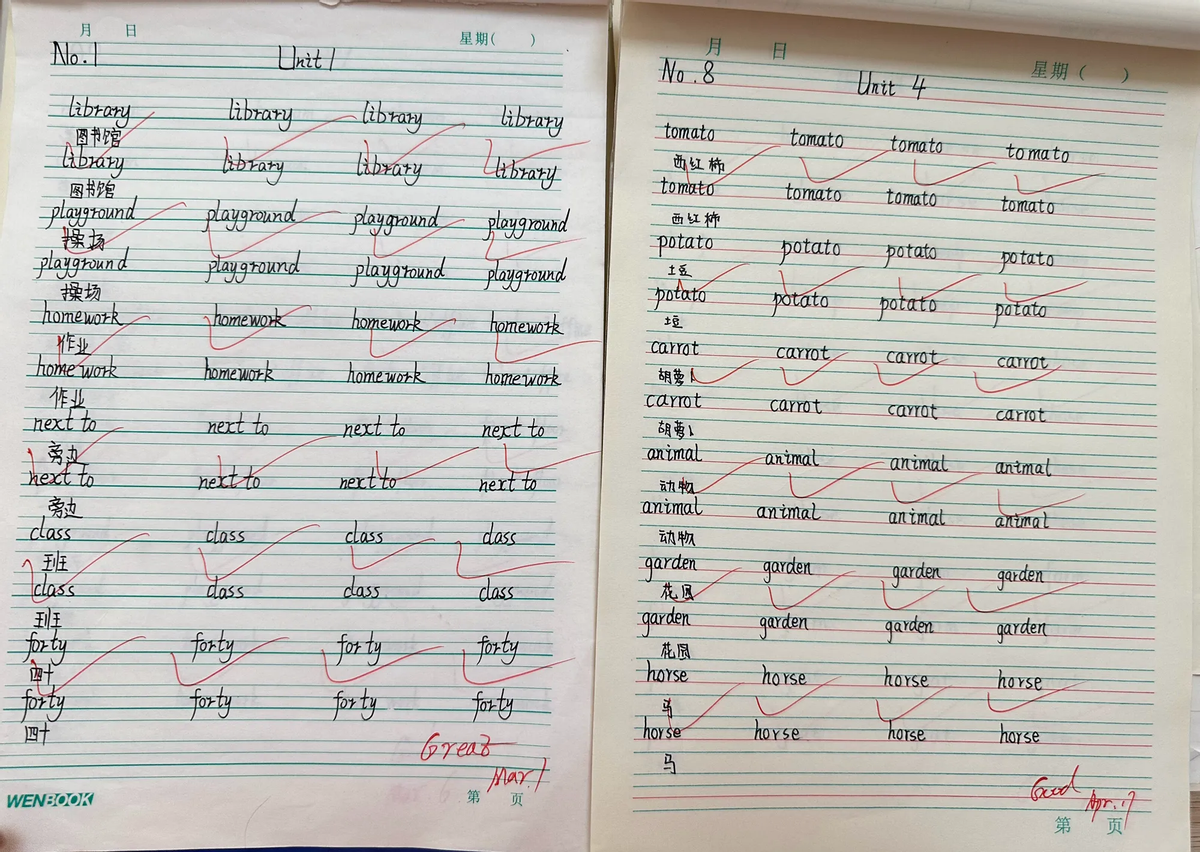 月 日 星期( )
No.1 Unit 1
library library library library
图书馆
library library library library
图书馆
playground playground playground playground
操场
playground playground playground playground
操场
homework homework homework homework
作业
homework homework homework homework
作业
next to next to next to next to
旁边
next to next to next to next to
旁边
class class class class
班
class class class class
班
forty forty forty forty
四十
forty forty forty forty
四十
Great
Mar.1
WENBOOK 第 页
月 日 星期( )
No.8 Unit 4
tomato tomato tomato tomato
西红柿
tomato tomato tomato tomato
西红柿
potato potato potato potato
土豆
potato potato potato potato
土豆
carrot carrot carrot carrot
胡萝卜
carrot carrot carrot carrot
胡萝卜
animal animal animal animal
动物
animal animal animal animal
动物
garden garden garden garden
花园
garden garden garden garden
花园
horse horse horse horse
马
horse horse horse horse
马
Good
Apr.17
第 页